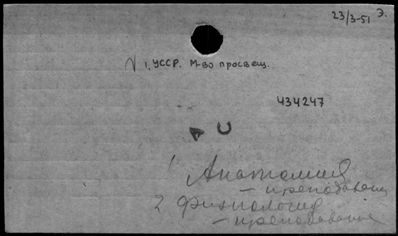 23/3-51 Э.
√ 1. УССР. М-во просвещ.
434247
1 Анатомия
- преподаван
2 Физиология
- преподавание